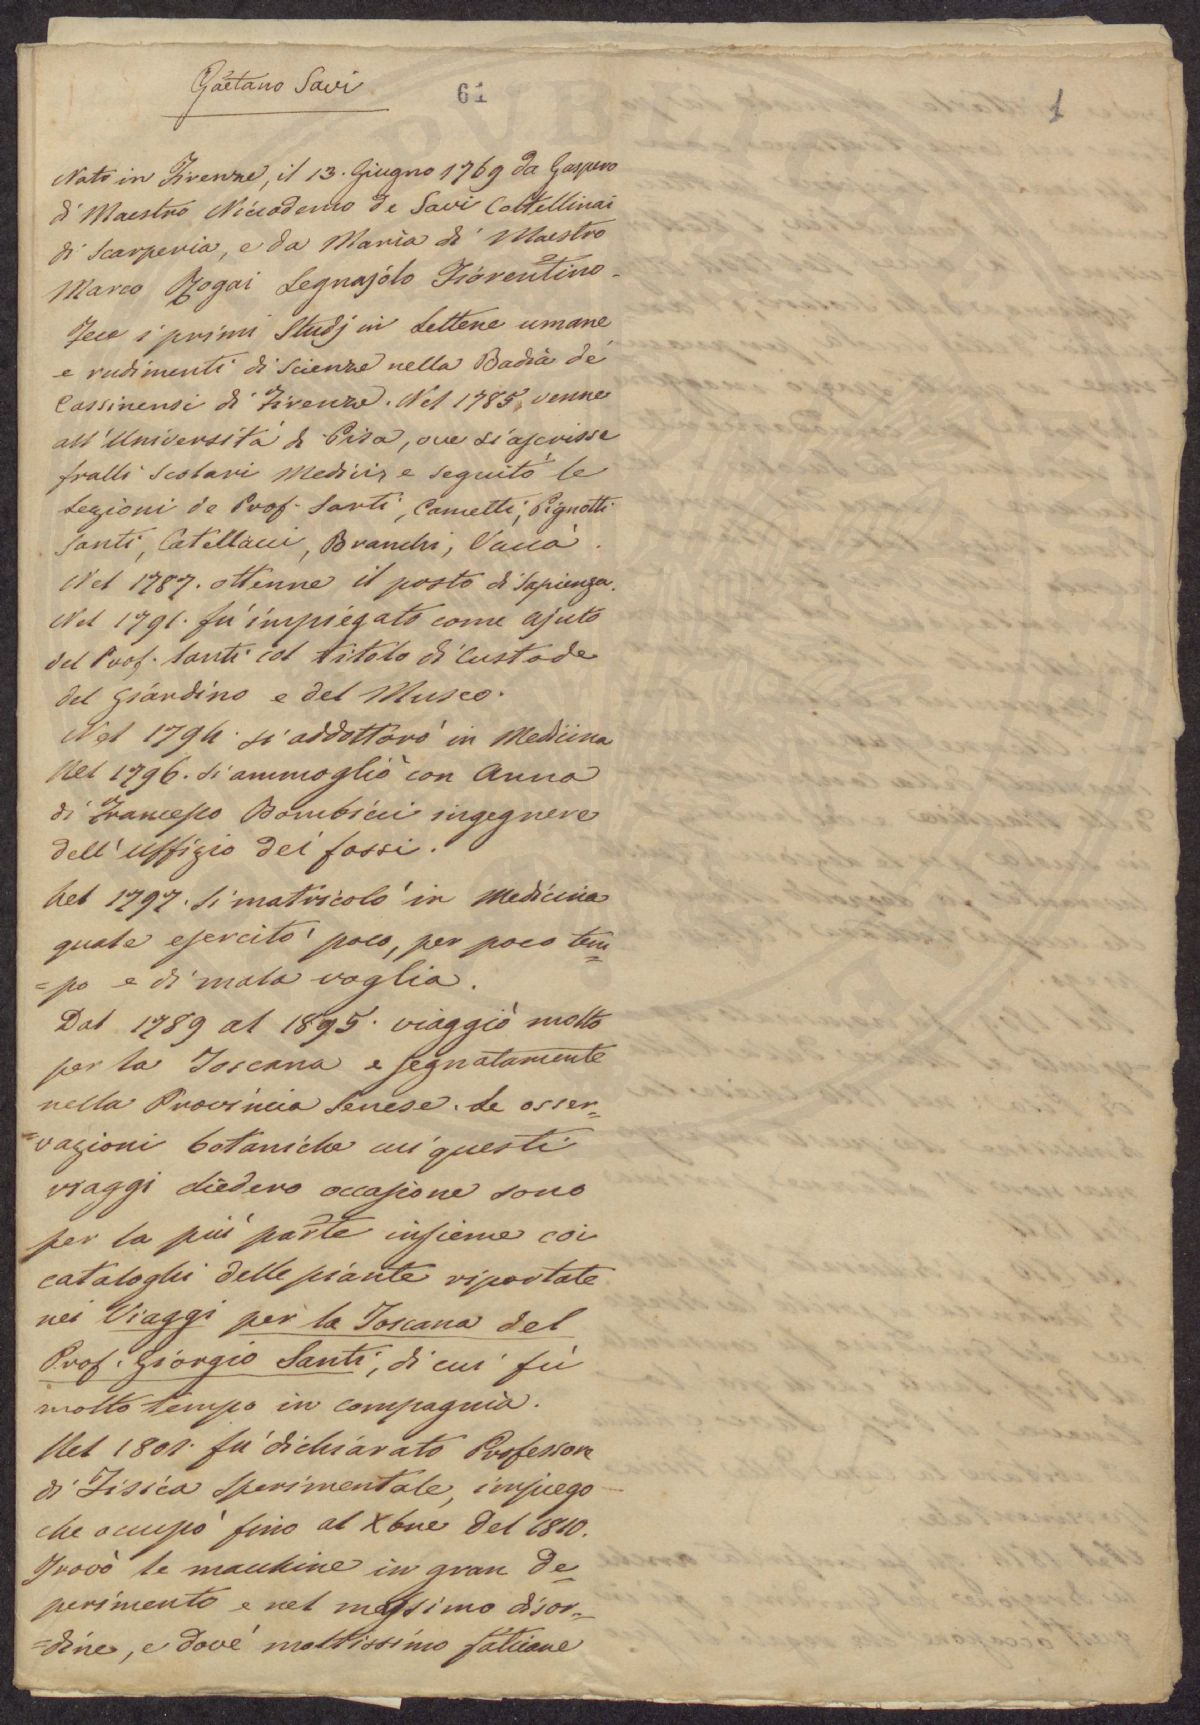 Gaetano Savi
61
1
Nato in Firenze, il 13. Giugno 1769 da Gaspero
di Maestro Niccodemo de Savi Coltellinai
di Scarperia, e da Maria di Maestro
Marco Rogai Legnajolo Fiorentino.
Fece i primi Studj in Lettere umane
e rudimenti di Scienze nella Badia de'
Cassinensi di Firenze. Nel 1785, venne
all'Università di Pisa, ove si ascrisse
fralli Scolari Medici, e seguitò le
Lezioni de Prof. Sarti, Cametti, Pignotti
Santi, Catellacci, Branchi, Vaccà.
Nel 1787. ottenne il posto di Sapienza.
Nel 1791. fù impiegato come ajuto
del Prof. Santi col titolo di Custode
del Giardino e del Museo.
Nel 1794. si addottorò in Medicina
Nel 1796. si ammogliò con Anna
di Francesco Bombicci ingegnere
dell'Uffizio dei fossi.
Nel 1797. si matricolò in Medicina
quale esercitò poco, per poco tem=
=po e di mala voglia.
Dal 1789 al 1895. viaggiò molto
per la Toscana e segnatamente
nella Provincia Senese. Le osser=
=vazioni botaniche cui questi
viaggi diedero occasione sono
per la più parte insieme coi
cataloghi delle piante riportate
nei Viaggi per la Toscana del
Prof. Giorgio Santi, di cui fù
molto tempo in compagnia.
Nel 1801. fù dichiarato Professore
di Fisica Sperimentale, impiego
che occupò fino al Xbre del 1810.
Trovò le macchine in gran de=
perimento e nel massimo disor=
=dine, e dovè moltissimo faticare